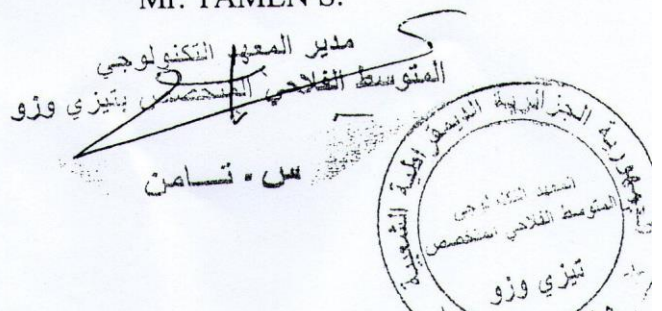 Mr. TAMEN S.
مدير المعهد التكنولوجي
المتوسط الفلاحي المتخصص بتيزي وزو
س . تــامن
الجمهورية الجزائرية الديمقراطية الشعبية
المعهد التكنولوجي
المتوسط الفلاحي المتخصص
تيزي وزو